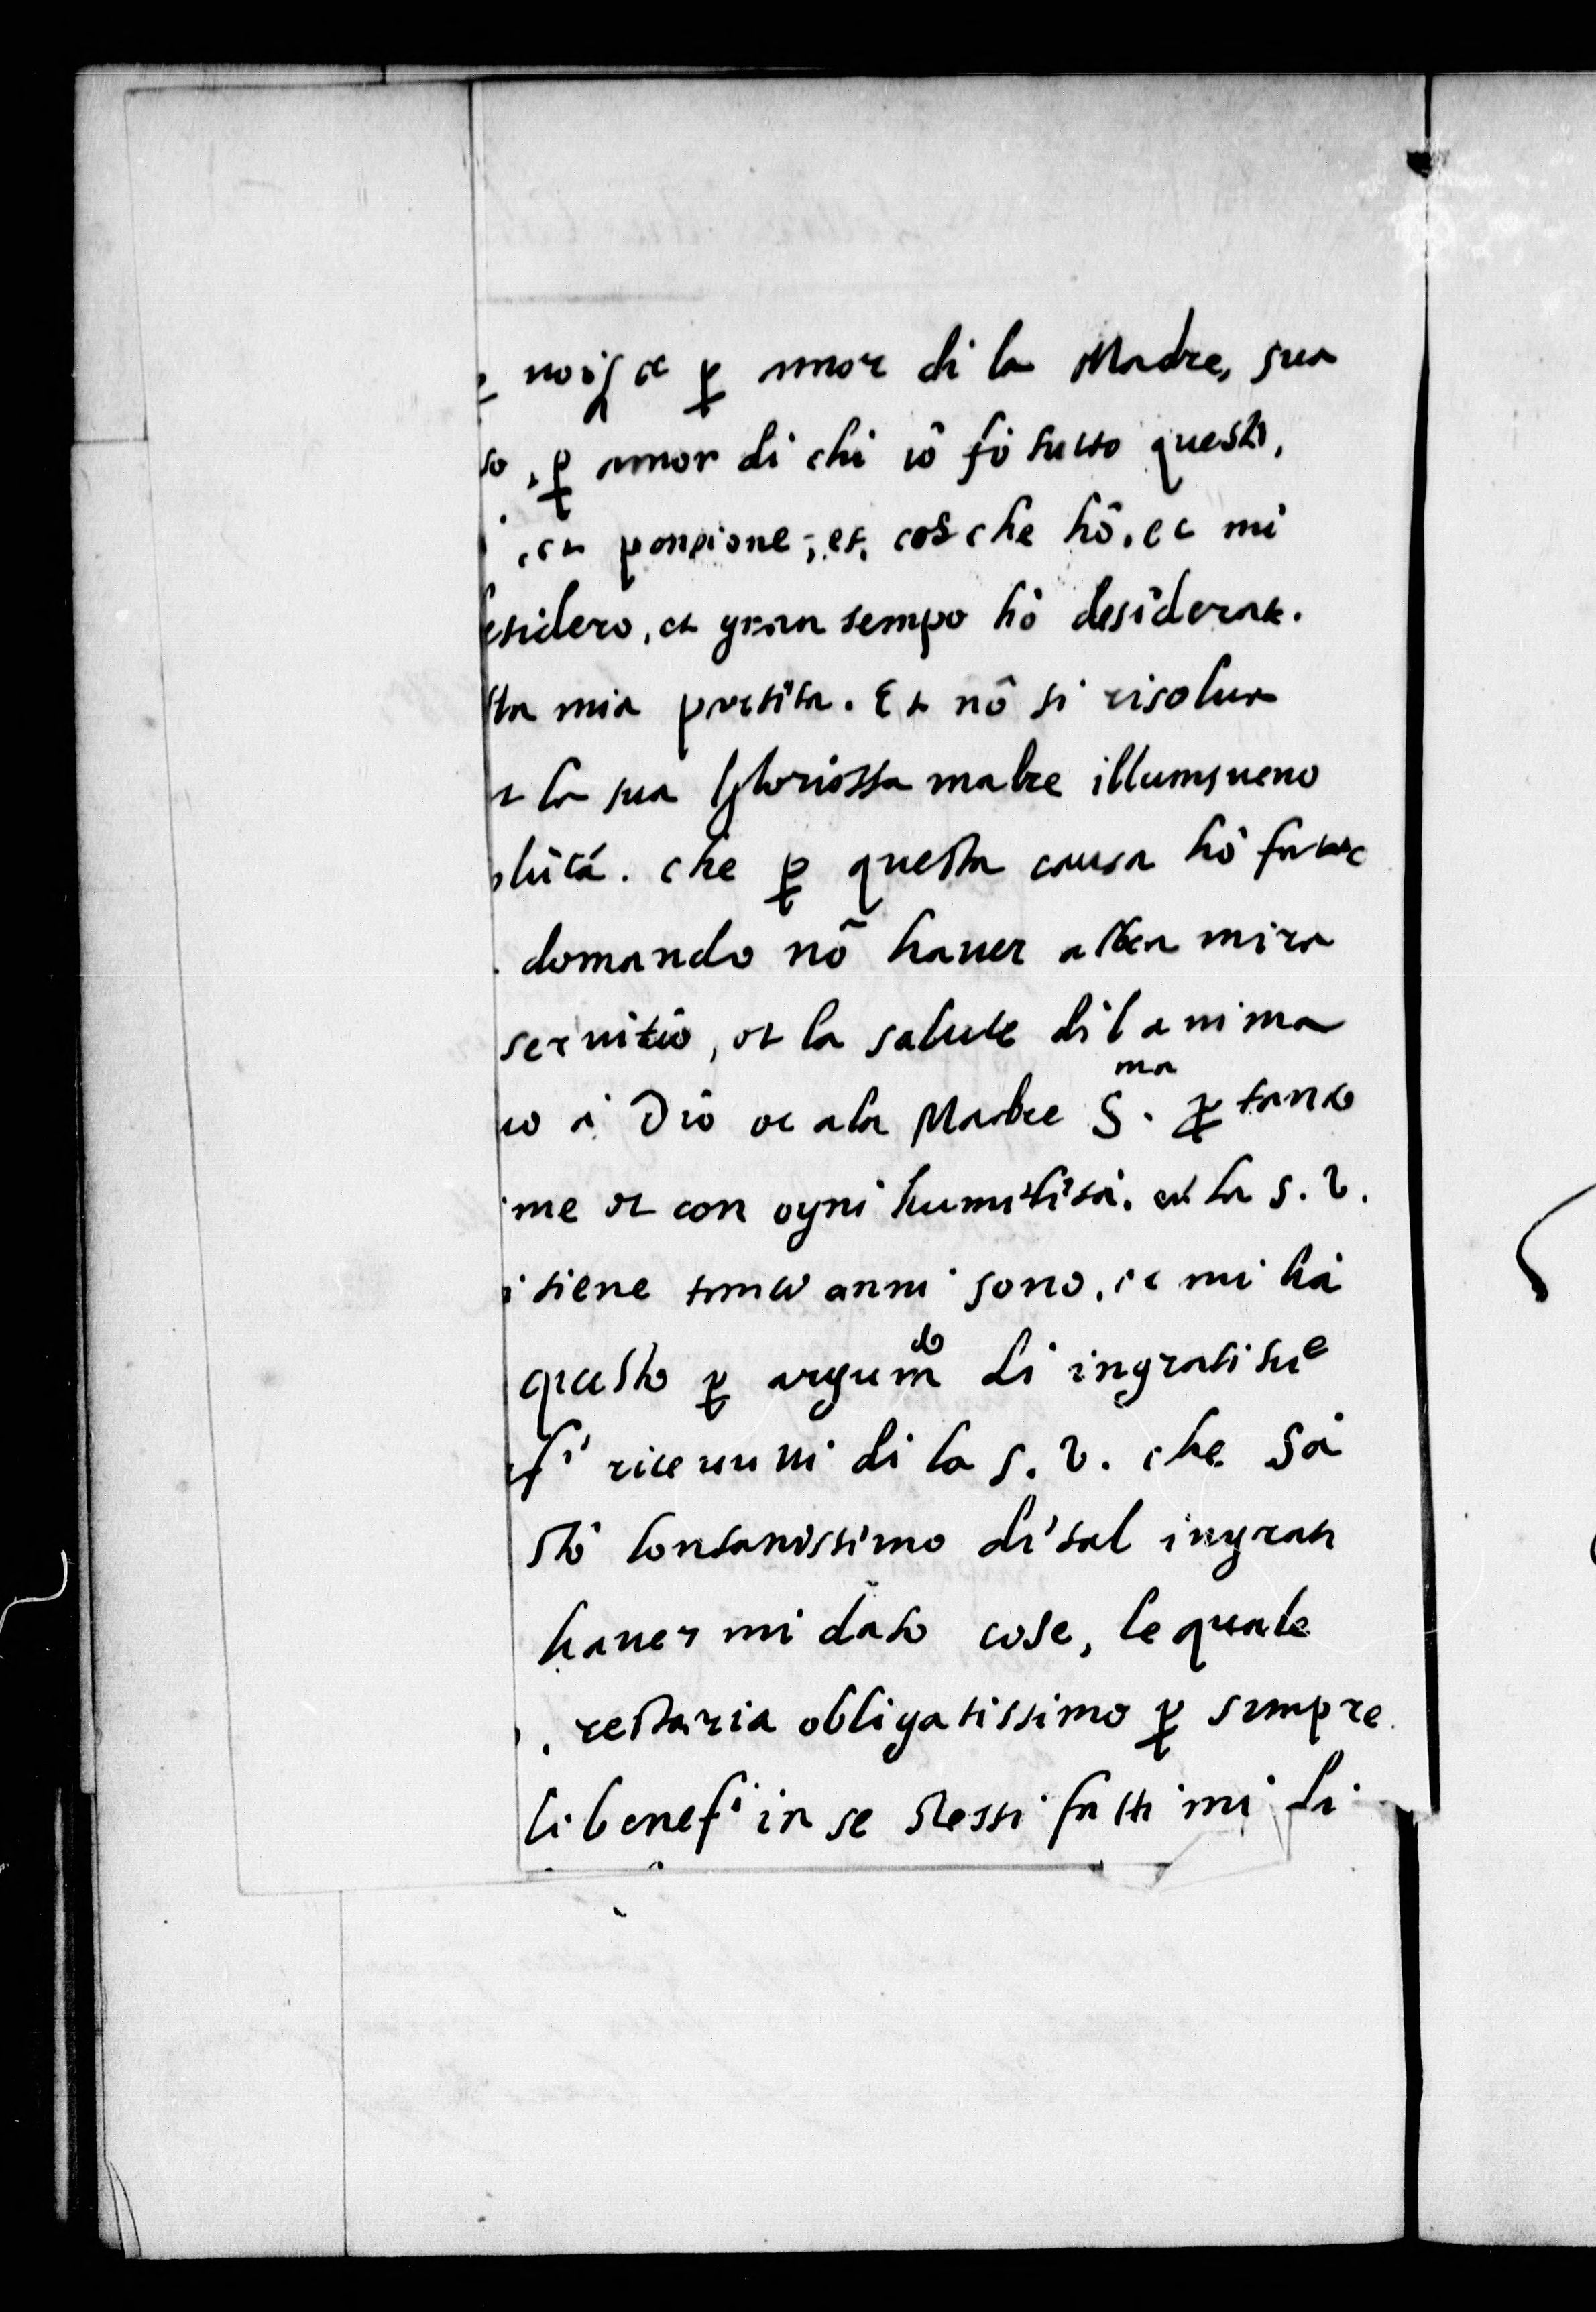 ꝑ amor di la Madre, sua
so, ꝑ amor di chi iô fô tutto questo,
et ponpione, et, che hô. et mi
esidero, et gran tempo hô desiderat.
sta mia partita. Et nô si risolua
et la sua gloriossa madre illumineno
olûtá. che ꝑ questa causa hô fatto
domando nô hauer altra mira
seruitio, et la salute dil anima
co à Dio et ala Madre S.ma ꝑ tanto
me et con ogni humilità. et la S. V.
i tiene tanti anni sono, et mi hà
questo ꝑ argum.to di ingratitu.e
efi riceuuti di la S. V. che Sà
stô lontanissimo di tal ingrati
hauer mi dato cose, le quale
. restaria obligatissimo ꝑ sempre
li benefi in se stessi fatti mi di